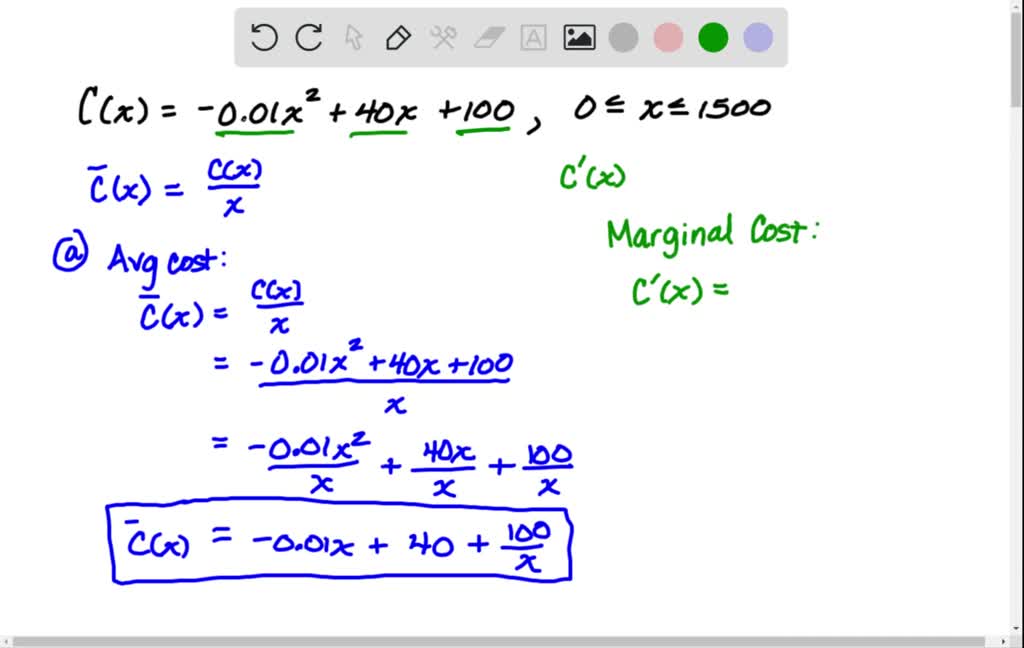 C(x) = -0.01x² + 40x + 100, 0 ≤ x ≤ 1500
C̄(x) = C(x)/x
C'(x)
Marginal Cost:
C'(x) =
ⓐ Avg cost:
C̄(x) = C(x)/x
= -0.01x² + 40x + 100 / x
= -0.01x²/x + 40x/x + 100/x
C̄(x) = -0.01x + 40 + 100/x